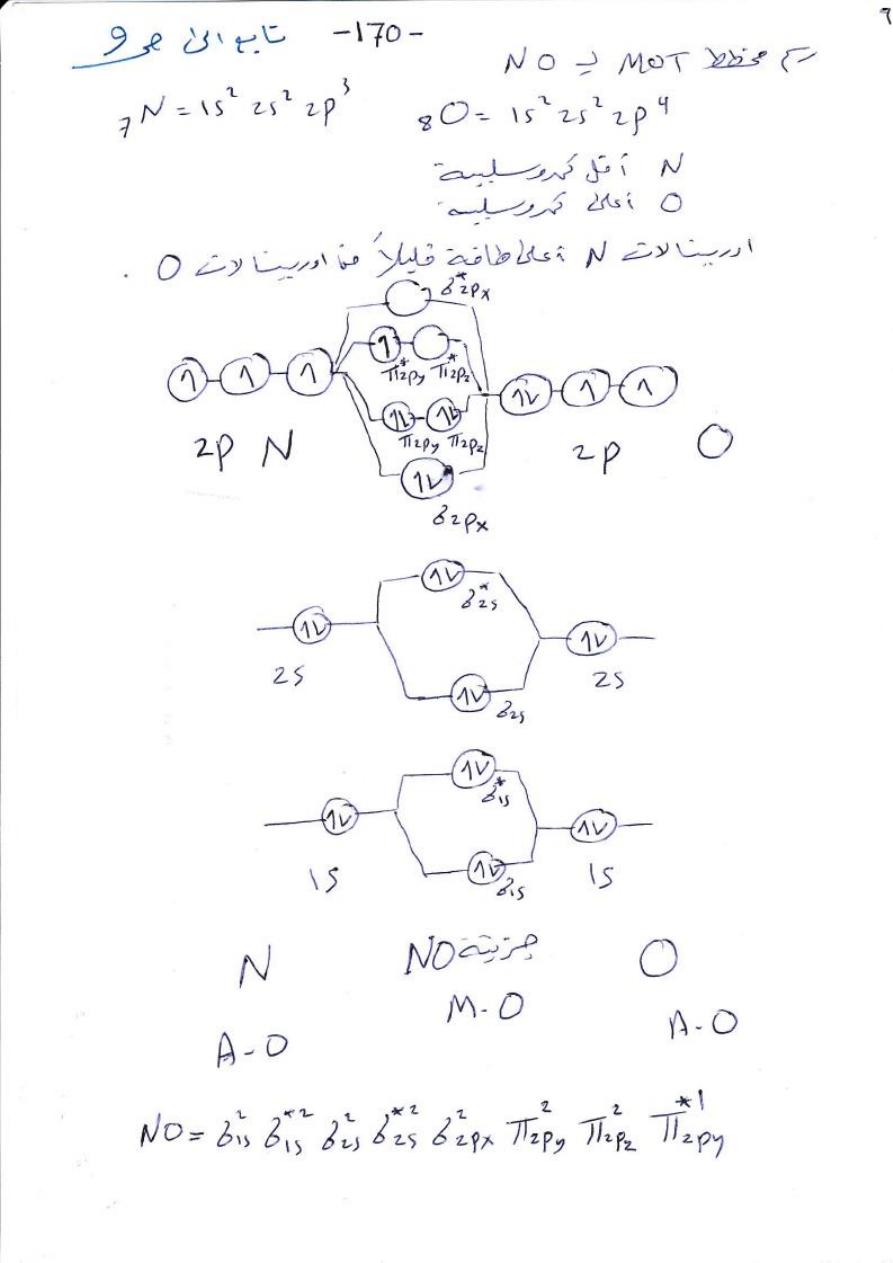 ٦
-170- تابع الى ص و
رسم مخطط MOT لـ NO
₇N = 1s² 2s² 2p³
₈O = 1s² 2s² 2p⁴
N أقل كهروسلبية
O أعلى كهروسلبية
اوربيتالات N أعلى طاقة قليلاً من اوربيتالات O .
σ*2px
1 1 1
1
1L 1 1
π*2py π*2pz
1L 1L
π2py π2pz
2p N
2p O
1L
σ2px
1L
σ*2s
1L 1L
2s 2s
1L
σ2s
1L
σ*1s
1L 1L
1L
1s 1s
σ1s
N جزيئة NO O
A-O M-O A-O
NO = σ²1s σ*²1s σ²2s σ*²2s σ²2px π²2py π²2pz π*¹2py